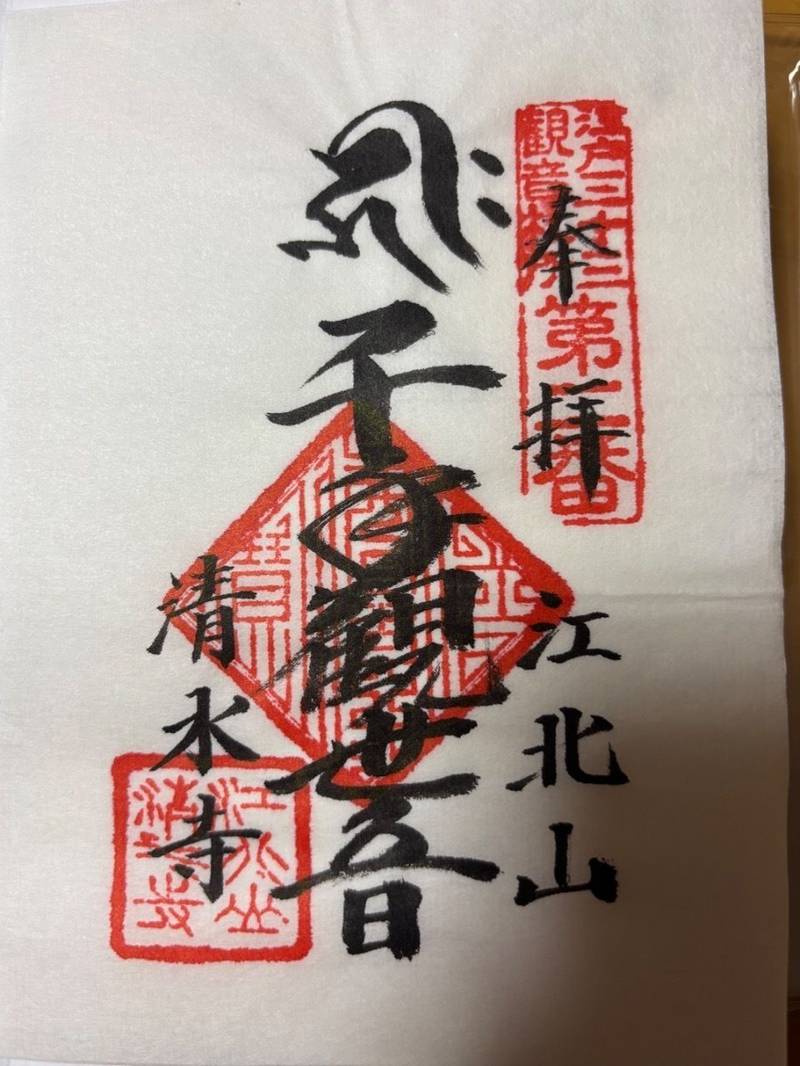 江戸三十三
観音札所
第二番
奉拝
江北山
千手觀世音
清水寺
江北山
清水寺